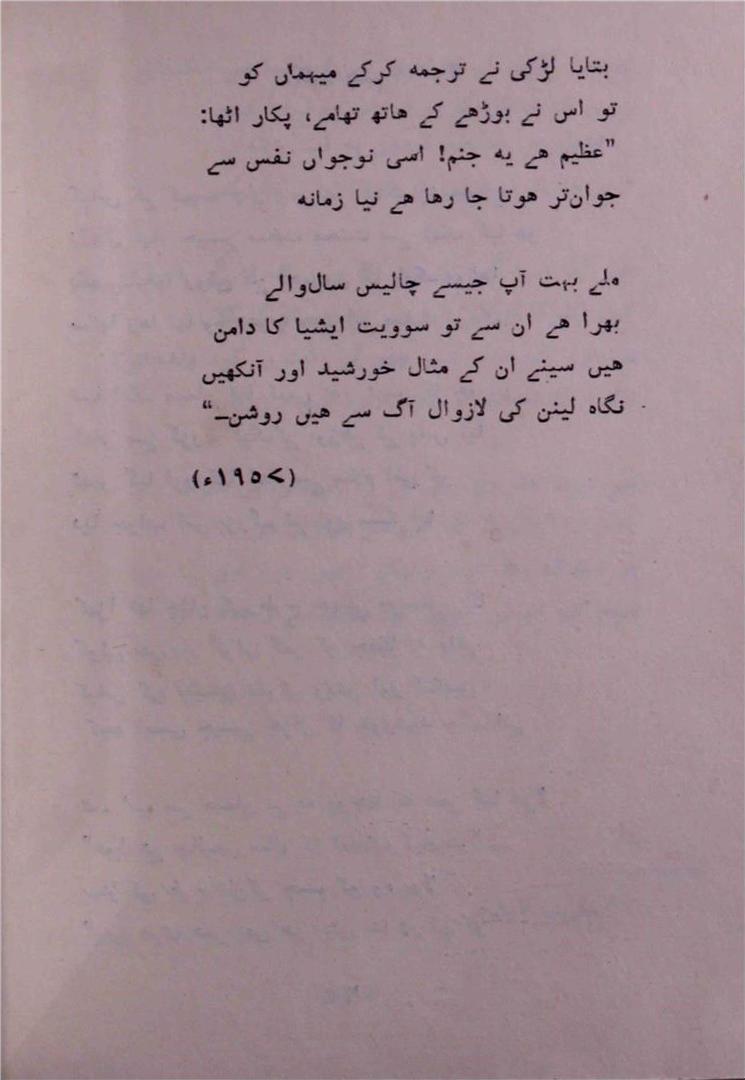 بتایا لڑکی نے ترجمہ کرکے میہماں کو
تو اس نے بوڑھے کے ہاتھ تھامے، پکار اٹھا:
”عظیم ہے یہ جنم! اسی نوجواں نفس سے
جواں‌تر ہوتا جا رہا ہے نیا زمانہ
ملے بہت آپ جیسے چالیس سال‌والے
بھرا ہے ان سے تو سوویت ایشیا کا دامن
ہیں سینے ان کے مثال خورشید اور آنکھیں
نگاہ لینن کی لازوال آگ سے ہیں روشن۔“
(۱۹۵۷ء)